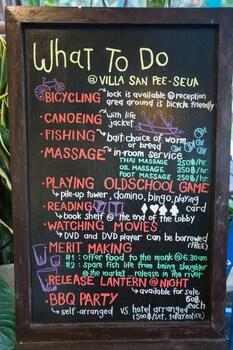 WHAT TO DO
@ VILLA SAN PEE-SEUA
BICYCLING → lock is available @ reception
area around is bicycle friendly
CANOEING → with life
jacket
FISHING → bait: choice of worm
or bread
MASSAGE → in-room service
THAI MASSAGE 250฿/hr.
OIL MASSAGE 350฿/hr.
FOOT MASSAGE 250฿/hr.
PLAYING OLDSCHOOL GAME
→ pile-up tower, domino, bingo, playing
card
READING
→ book shelf @ the end of the lobby
WATCHING MOVIES
→ DVD and DVD player can be borrowed
(FREE)
MERIT MAKING
#1 : offer food to the monk @ 6.30am
#2 : spare fish life from being slaughter
@ the market... release in the river
RELEASE LANTERN @ NIGHT
→ available for sale
60฿
each
BBQ PARTY
→ self-arranged vs hotel arranged
(500฿/set, 1 day notice)